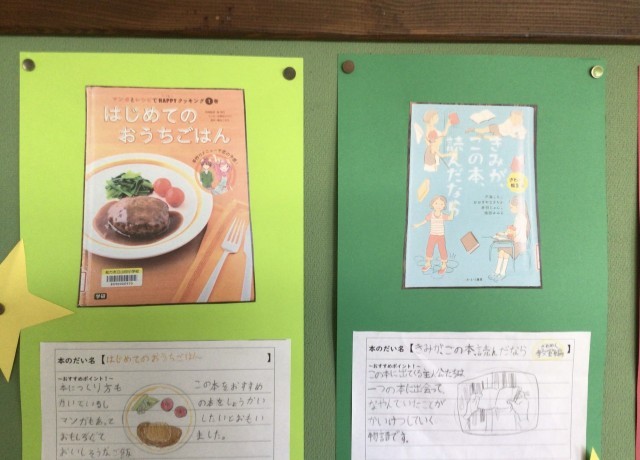 HAPPYクッキング 1
はじめての
おうちごはん
学研
きみが
この本
読んだなら
本のだい名【はじめてのおうちごはん】
~おすすめポイント!~
本につくり方も
かいているし
マンガもあって
おもしろくて
この本をおすすめ
の本をしょうかい
したいとおもい
ました。
本のだい名【きみがこの本読んだなら】
~おすすめポイント!~
この本に出てくる主人公たちは
一つの本に出会って、
なやんでいたことが
かいけつしていく
物語です。